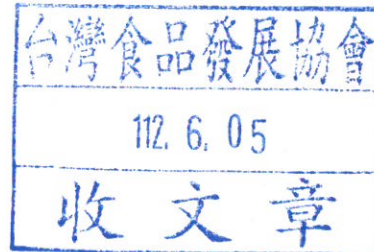 台灣食品發展協會
112. 6. 05
收文章